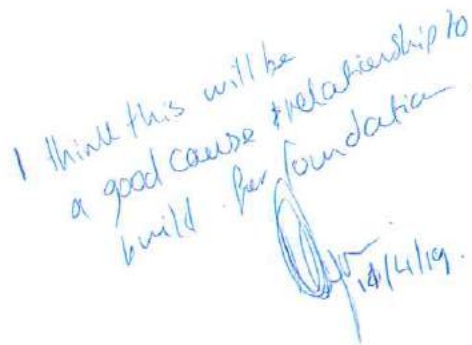 I think this will be
a good cause & relationship to
build for foundation
/4/19.